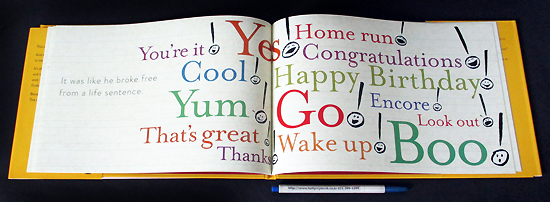 It was like he broke free
from a life sentence.
You're it!
Yes!
Cool!
Yum!
That's great!
Thanks!
Home run!
Congratulations!
Happy Birthday!
Go!
Encore!
Look out!
Wake up!
Boo!